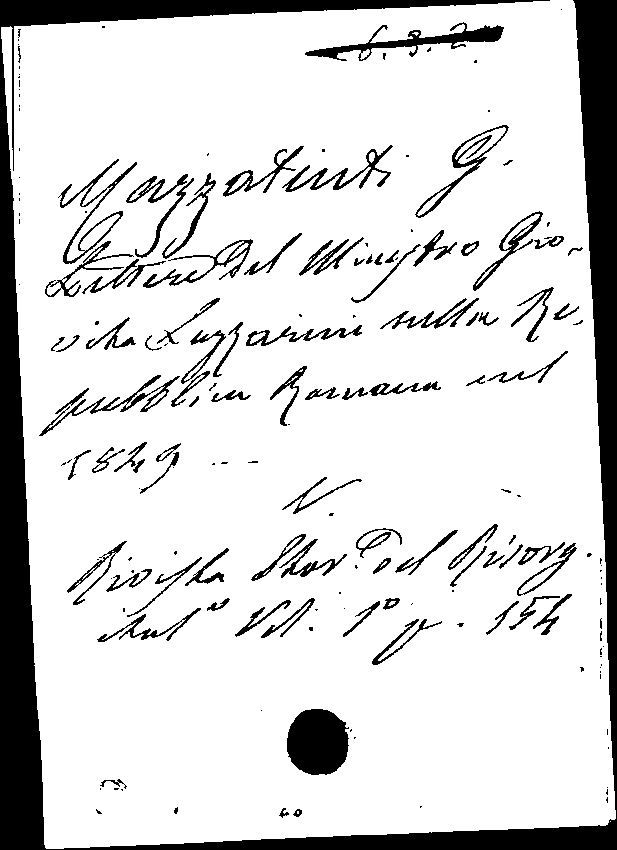 6. 3. 2
Mazzatinti G.
Lettere del Ministro Gio-
vita Lazzarini sulla Re-
pubblica Romana nel
1849 ---
V.
Rivista Stor.ª del Risorg.
ital.º Vol. 1º p. 154